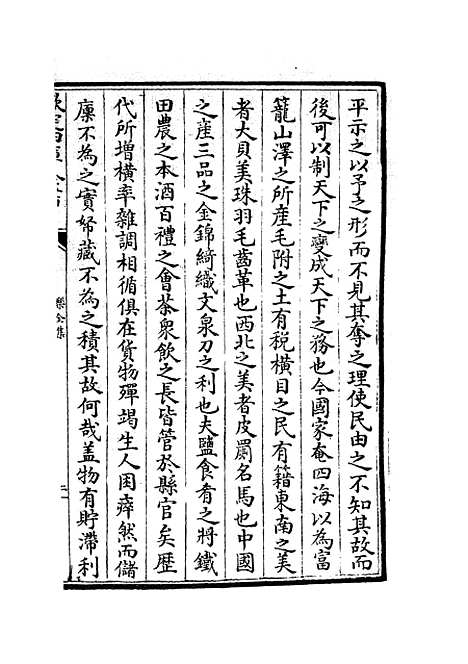 平示之以予之形而不見其奪之理使民由之不知其故而
後可以制天下之變成天下之務也今國家奄四海以為富
籠山澤之所産毛附之土有税橫目之民有籍東南之美
者大貝美珠羽毛齒革也西北之美者皮罽名馬也中國
之産三品之金錦綺織文泉刀之利也夫鹽食肴之將鐵
田農之本酒百禮之會茶衆飲之長皆管於縣官矣歴
代所增横率雜調相循俱在貨物殫竭生人困瘁然而儲
廩不為之實帑藏不為之積其故何哉盖物有貯滯利
樂全集